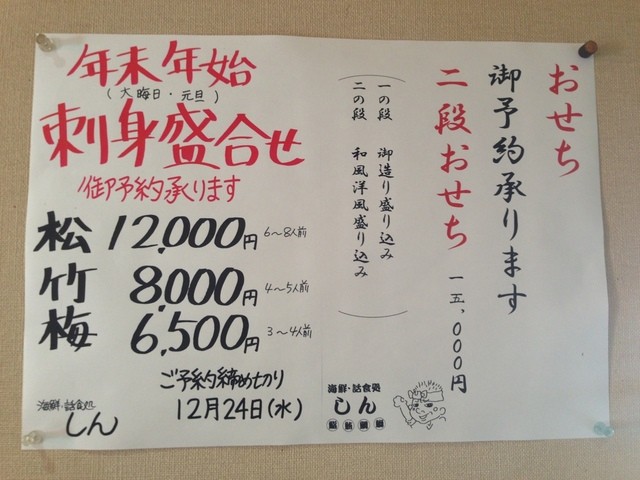 おせち
御予約承ります
二段おせち 一五,〇〇〇円
一の段 御造り盛り込み
二の段 和風洋風盛り込み
海鮮・話食処
しん
年末年始
(大晦日・元旦)
刺身盛合せ
御予約承ります
松 12,000円 6〜8人前
竹 8,000円 4〜5人前
梅 6,500円 3〜4人前
ご予約締めきり
12月24日(水)
海鮮・話食処
しん